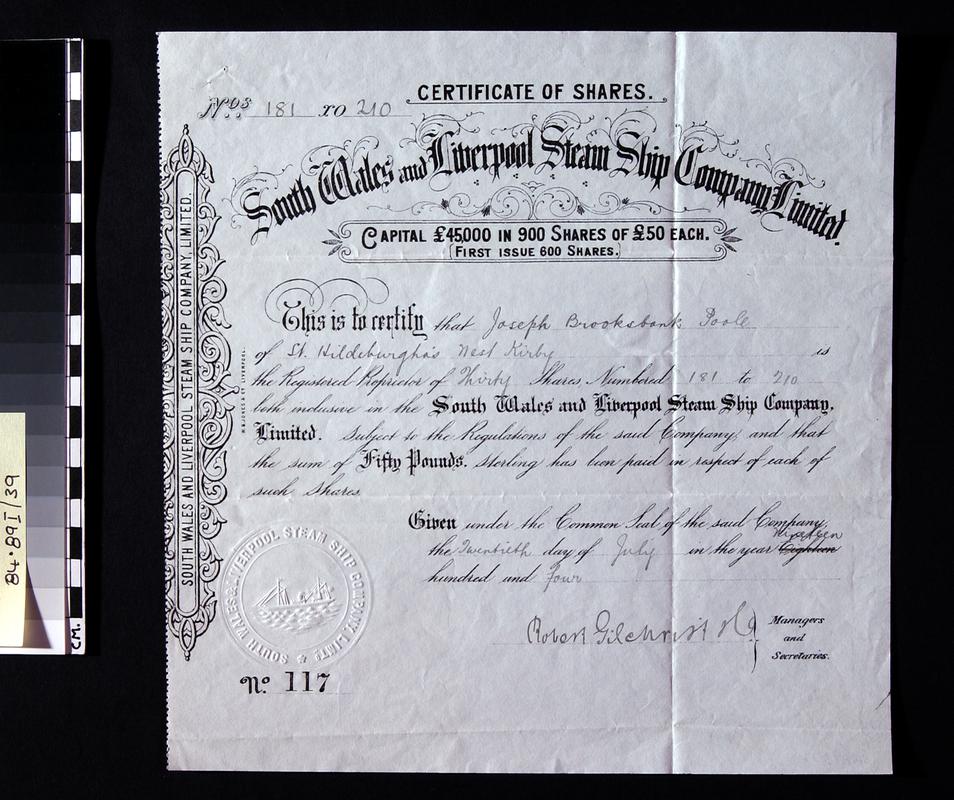 CERTIFICATE OF SHARES.
Nos. 181 TO 210
South Wales and Liverpool Steam Ship Company, Limited.
CAPITAL £45,000 IN 900 SHARES OF £50 EACH.
(FIRST ISSUE 600 SHARES.)
This is to certify that Joseph Brooksbank Poole
of St. Hildeburgha's West Kirby is
the Registered Proprietor of Thirty Shares. Numbered 181 to 210
both inclusive in the South Wales and Liverpool Steam Ship Company,
Limited. Subject to the Regulations of the said Company, and that
the sum of Fifty Pounds. sterling has been paid in respect of each of
such Shares.
Given under the Common Seal of the said Company,
the Twentieth day of July in the year Eighteen nineteen
hundred and four
Robert Gilchrist & Co
Managers
and
Secretaries.
No. 117
SOUTH WALES & LIVERPOOL STEAM SHIP COMPANY LIMTD
SOUTH WALES AND LIVERPOOL STEAM SHIP COMPANY, LIMITED.
84.89I/39
CM.